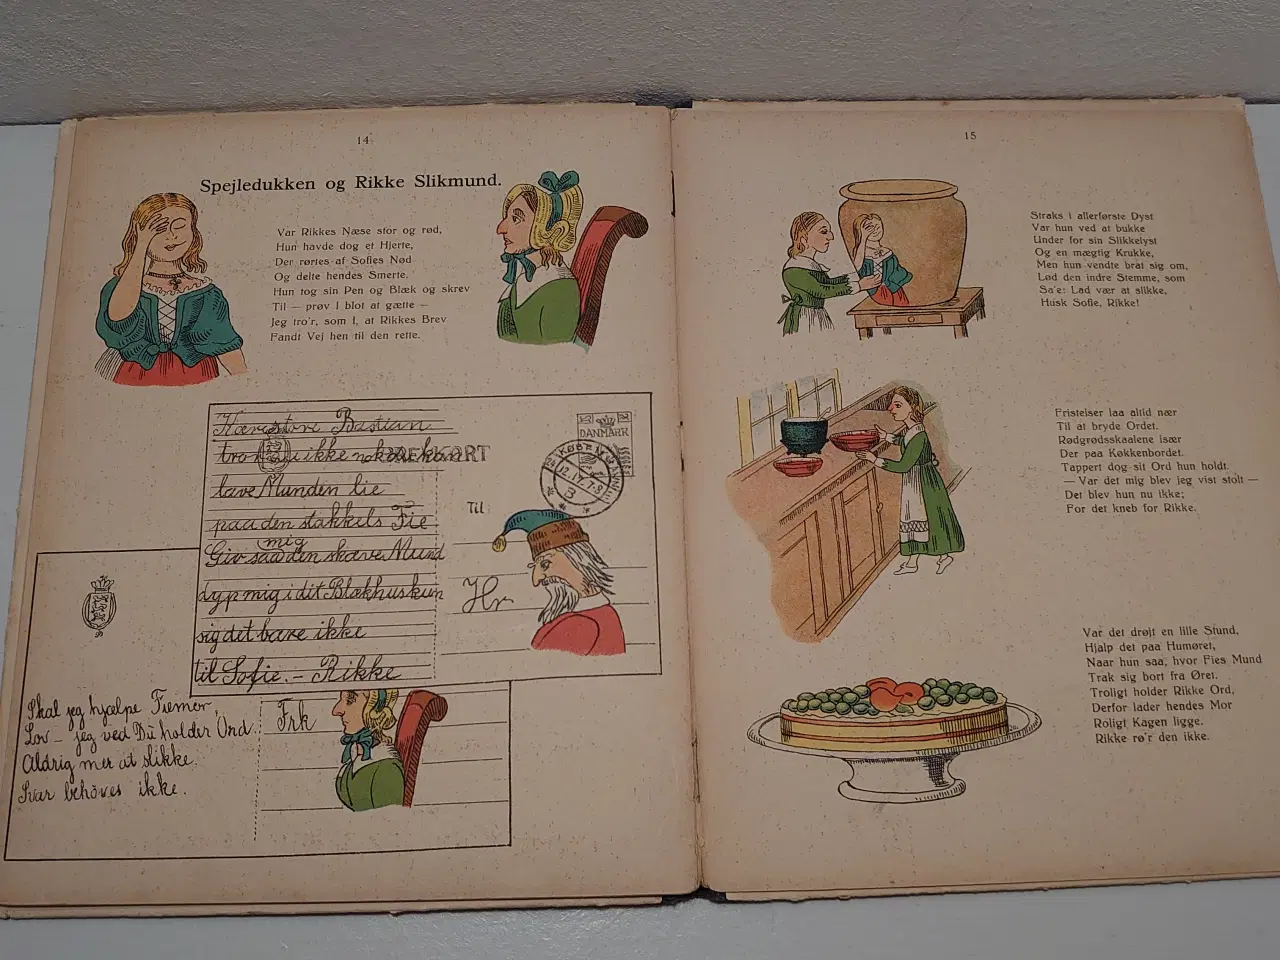 14
Spejledukken og Rikke Slikmund.
Var Rikkes Næse stor og rød,
Hun havde dog et Hjerte,
Der rørtes af Sofies Nød
Og delte hendes Smerte.
Hun tog sin Pen og Blæk og skrev
Til — prøv I blot at gætte —
Jeg tro'r, som I, at Rikkes Brev
Fandt Vej hen til den rette.
Kærestore Bastian
tror du ikke nok du kan
lave Munden lie
paa den stakkels Fie
mig
Giv saa den skæve Mund
dyp mig i dit Blækhus kun
sig det bare ikke
til Sofie. — Rikke
BREVKORT
DANMARK
KØBENHAVN
12.17.7-8
B
Til
Hr
Skal jeg hjælpe Fiemor,
Lov — jeg ved Du holder Ord
Aldrig mer at slikke.
Svar behøves ikke.
Frk
15
Straks i allerførste Dyst
Var hun ved at bukke
Under for sin Slikkelyst
Og en mægtig Krukke,
Men hun vendte brat sig om,
Lød den indre Stemme, som
Sa'e: Lad vær at slikke,
Husk Sofie, Rikke!
Fristelser laa altid nær
Til at bryde Ordet.
Rødgrødsskaalene især
Der paa Køkkenbordet.
Tappert dog sit Ord hun holdt.
— Var det mig blev jeg vist stolt —
Det blev hun nu ikke;
For det kneb for Rikke.
Var det drøjt en lille Stund,
Hjalp det paa Humøret,
Naar hun saa, hvor Fies Mund
Trak sig bort fra Øret.
Troligt holder Rikke Ord,
Derfor lader hendes Mor
Roligt Kagen ligge.
Rikke rø'r den ikke.